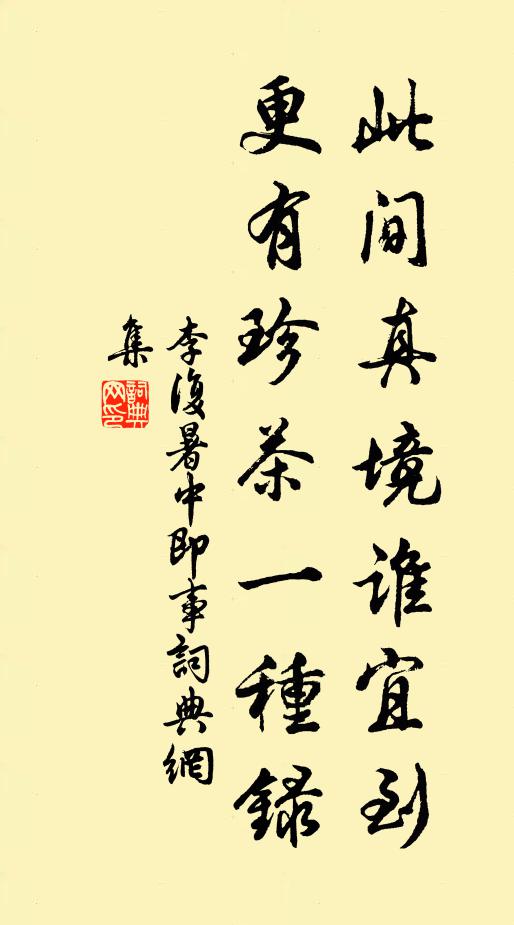 此间真境谁宜到
更有珍茶一種録
李復暑中即事詞典網
集
詞典
网印